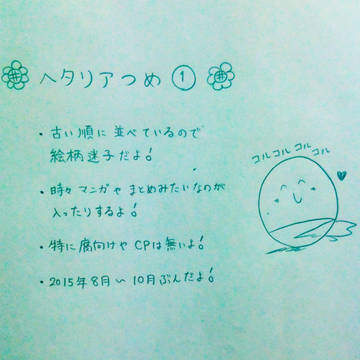 ヘタリアつめ①
・古い順に並べているので
絵柄迷子だよ!
・時々マンガやまとめみたいなのが
入ったりするよ!
・特に腐向けやCPは無いよ!
・2015年8月〜10月ぶんだよ!
コルコルコルコル